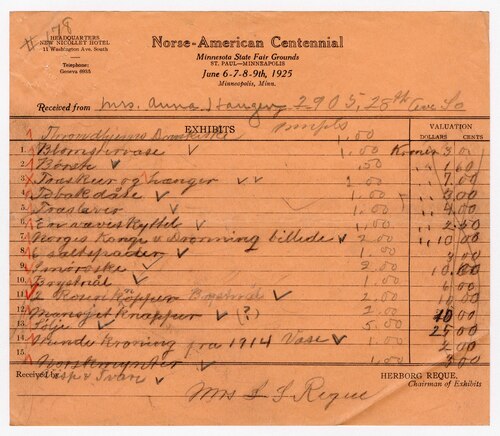 # 178
HEADQUARTERS
NEW NICOLLET HOTEL
11 Washington Ave. South
Telephone:
Geneva 6955
Norse-American Centennial
Minnesota State Fair Grounds
ST. PAUL—MINNEAPOLIS
June 6-7-8-9th, 1925
Minneapolis, Minn.
Received from Mrs. Anna Haugen 2905, 25th Ave So
EXHIBITS
VALUATION
DOLLARS CENTS
1,00
1. Blomstervase 1,00 Kroner 3 00
2. Börste .50
3. Træskur og hanger 7.00
4. Tobakdåse 1.00 3,00
5. 1.00 4 00
6. 1.00 2 50
7. Norges Konge v Dronning billede 2 00 10 00
8. 1.00 3 00
9. 2.00 10.00
10. Brystnål 1.00
11. 2 Brystnål 2.00
12. Mansjet Knapper (?) 2.00 10 00
13. Sölje 5.00 25 00
14. Kroning fra 1914 Vase 1.00 2 00
15. Norskmynter 1,00 3 00
Received by
HERBORG REQUE,
Chairman of Exhibits
Mrs S S Reque